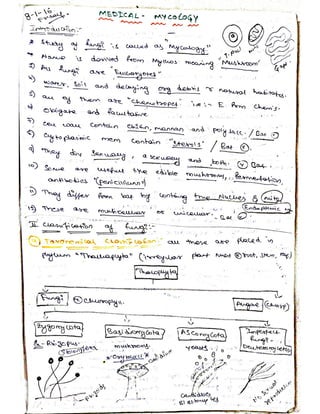 8-1-16
Friday
MEDICAL - MYCOLOGY
Introduction:-
* Study of fungi is called as "Mycology"
* Name is derived from Mykos meaning "Mushroom"
3) As fungi are "Eucaryotes"
4) water, soil and decaying org debris & natural habitats.
5) all of them are "chemotrops" i.e :- E from chemi's.
6) Obligate and facultative
7) cell wall contain chitin, mannan and polysacc. / Bac
8) Cytoplasmic mem contain "sterols" / Bac
9) They div sexually, asexually and both. Bac
10) Some are useful like edible mushrooms, fermentation, antibiotics "(penicillium)"
11) They differ from bac by containing true Nucleus & mito
12) These are multicellular or unicellular. Bac
Endoplasmic
II Classification of fungi:-
Taxonomical classification: all these are placed in
phylum "Thallophyta" (irregular plant mass root, stem,
Thallophyta
Fungi
chlorophyc
Algae
Zygomycota
Basidiomycota
Ascomycota
Imperfect fungi - Deuteromycota
mushrooms
yeasts
Rhizopus
Candida